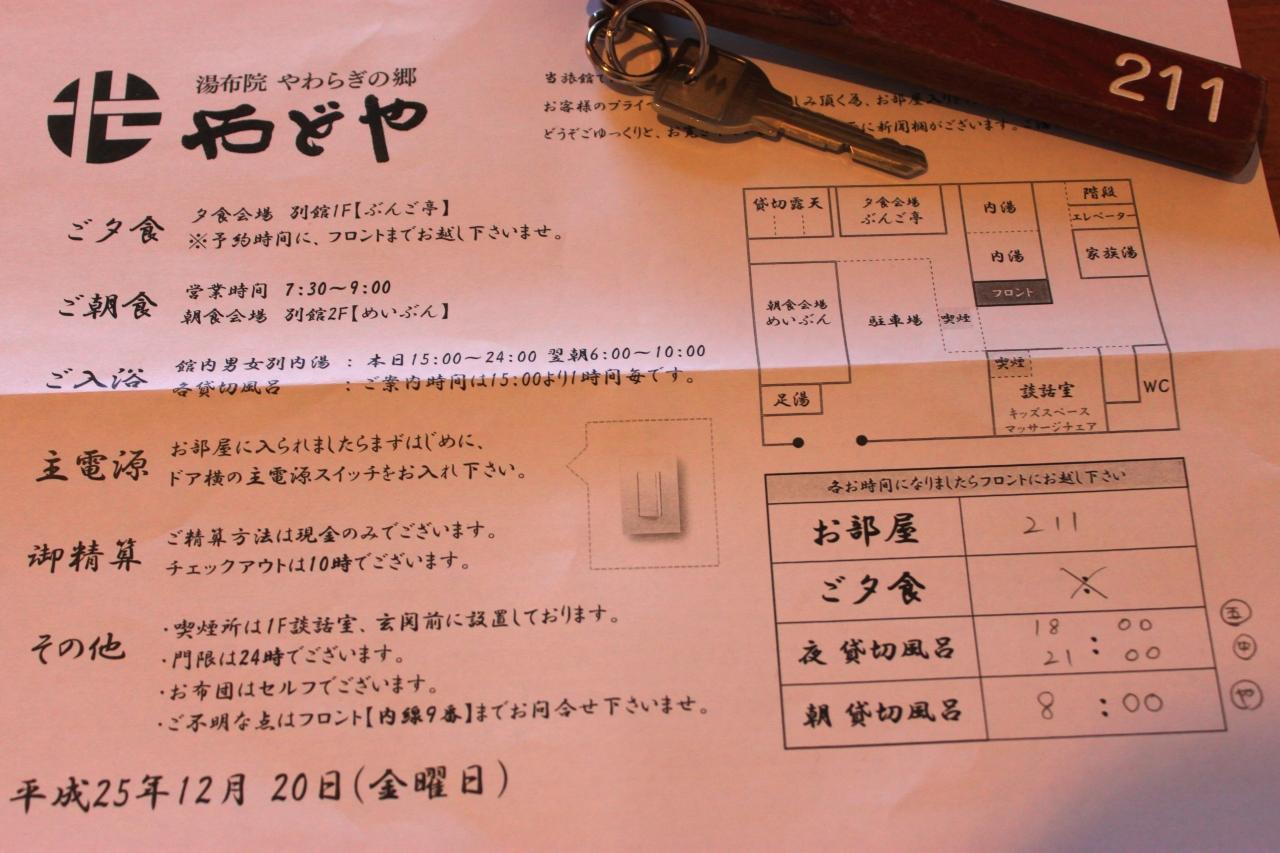 湯布院 やわらぎの郷
やどや
211
当旅館で
お客様のプライベ
しみ頂く為、お部屋
どうぞごゆっくりと、お
に新聞棚がございます。
ご夕食
夕食会場 別館1F【ぶんご亭】
※予約時間に、フロントまでお越し下さいませ。
ご朝食
営業時間 7:30~9:00
朝食会場 別館2F【めいぶん】
ご入浴
館内男女別内湯 : 本日15:00~24:00 翌朝6:00~10:00
各貸切風呂 : ご案内時間は15:00より1時間毎です。
主電源
お部屋に入られましたらまずはじめに、
ドア横の主電源スイッチをお入れ下さい。
御精算
ご精算方法は現金のみでございます。
チェックアウトは10時でございます。
その他
・喫煙所は1F談話室、玄関前に設置しております。
・門限は24時でございます。
・お布団はセルフでございます。
・ご不明な点はフロント【内線9番】までお問合せ下さいませ。
平成25年12月 20日(金曜日)
貸切露天
夕食会場
ぶんご亭
内湯
階段
エレベーター
内湯
家族湯
フロント
朝食会場
めいぶん
駐車場
喫煙
喫煙
足湯
談話室
キッズスペース
マッサージチェア
WC
各お時間になりましたらフロントにお越し下さい
お部屋 211
ご夕食 :
夜 貸切風呂 18 : 00 五
21 : 00 中
朝 貸切風呂 8 : 00 や